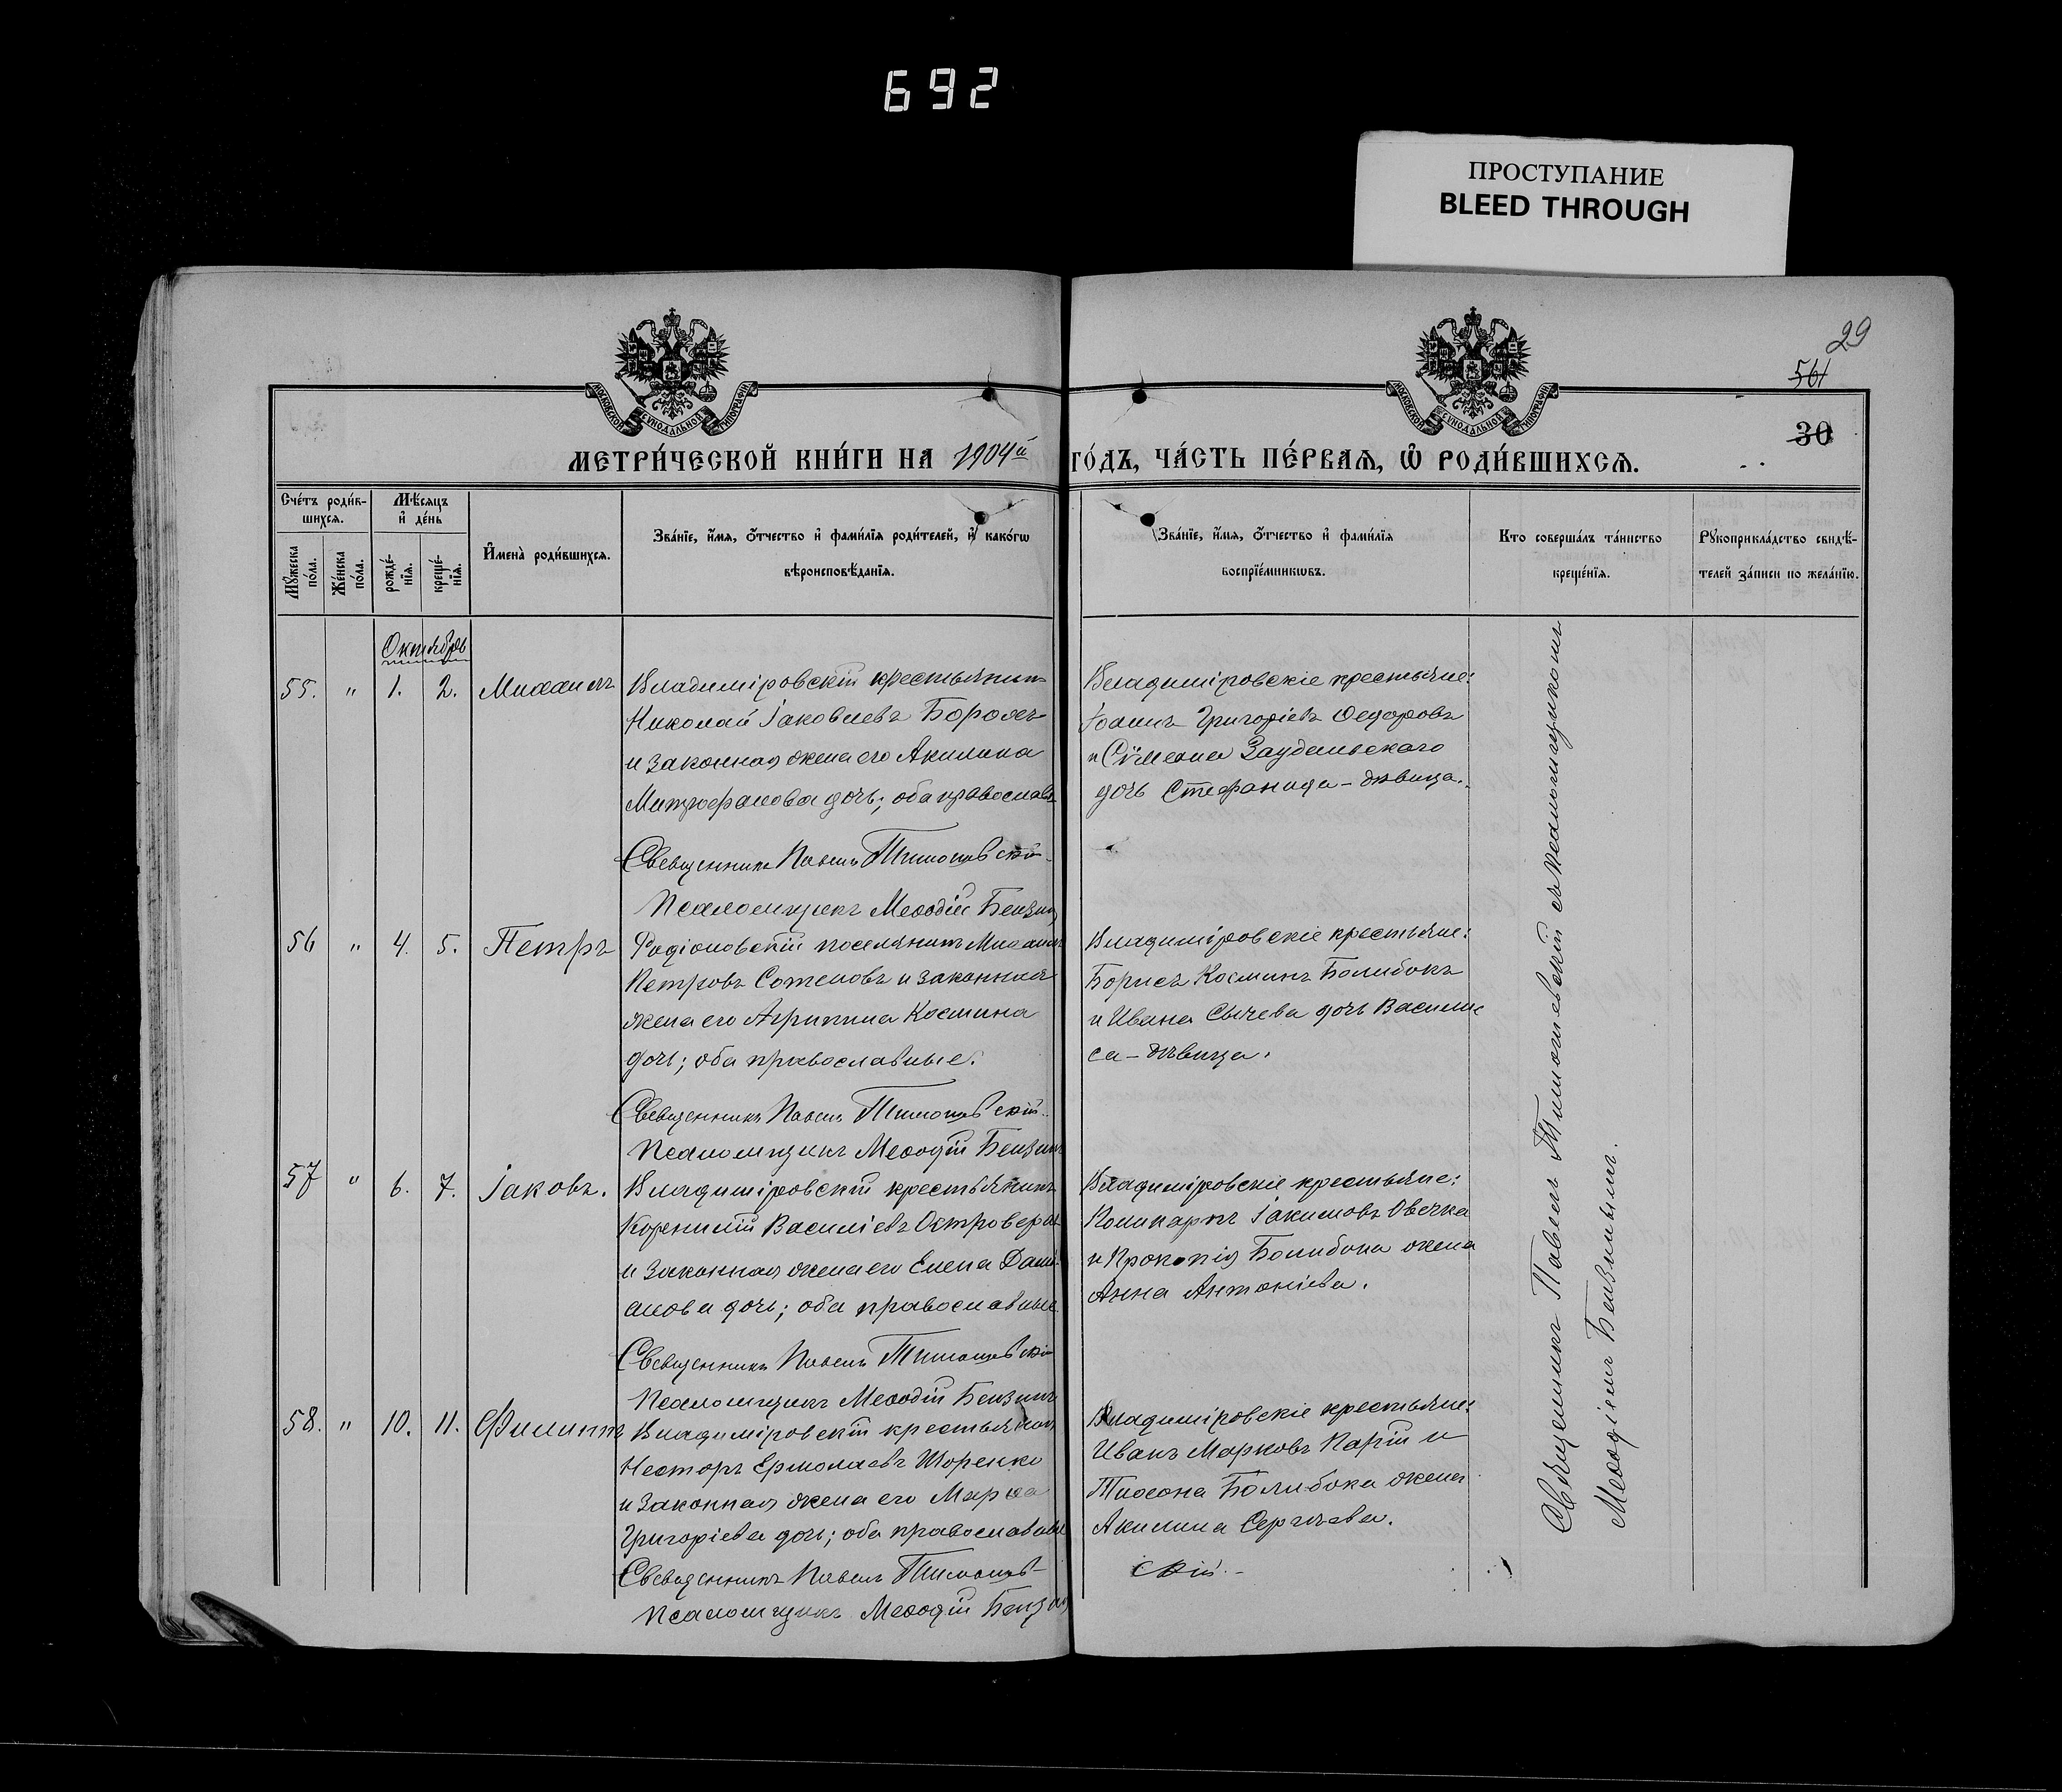 692
ПРОСТУПАНИЕ
BLEED THROUGH
29
561
30
МОСКОВСКОЙ СѴНОДАЛЬНОЙ ТИПОГРАФІИ
МОСКОВСКОЙ СѴНОДАЛЬНОЙ ТИПОГРАФІИ
МЕТРИ́ЧЕСКОЙ КНИ́ГИ НА 1904й ГО́ДЪ, ЧА́СТЬ ПЕ́РВАѦ, Ѽ РОДИ́ВШИХСѦ.
Сче́тъ роди́вшихсѧ.
Мꙋ́жеска по́ла.
Же́нска по́ла.
Мѣ́сѧцъ и҆ де́нь
рожде́нїѧ.
креще́нїѧ.
И҆мена̀ роди́вшихсѧ.
Зва́нїе, и҆́мѧ, ѻ҆́тчество и҆ фами́лїѧ роди́телей, и҆ како́гѡ
вѣроисповѣ́данїѧ.
Зва́нїе, и҆́мѧ, ѻ҆́тчество и҆ фами́лїѧ
воспрїе́мникѡвъ.
Кто соверша́лъ та́инство
креще́нїѧ.
Рꙋкоприкла́дство свидѣ́-
телей за́писи по жела́нїю.
Октябрь
55. " 1. 2. Михаилъ
Владиміровскій крестьянинъ
Николай Іаковлевъ
и законная жена его Акилина
Митрофанова дочь; оба православ
Священникъ Павелъ Тимошевскій
Псаломщикъ Меѳодій Бензинъ
Владиміровскіе крестьяне:
Іоаннъ Григоріевъ Ѳедоровъ
и Сѵмеона Заудальскаго
дочь Стефанида - дѣвица.
56 " 4. 5. Петръ
Родіоновскій поселянинъ Михаилъ
Петровъ Сотеновъ и законная
жена его Агриппина Космина
дочь; оба православные.
Священникъ Павелъ Тимошевскій.
Псаломщикъ Меѳодій Бензинъ
Владиміровскіе крестьяне:
Борисъ Косминъ Болибокъ
и Ивана Сычева дочь Васили
са - дѣвица.
57 " 6. 7. Іаковъ.
Владиміровскій крестьянинъ
Корнилій Василіевъ Островерхъ
и законная жена его Елена Дамі
анова дочь; оба православные
Священникъ Павелъ Тимошевскій
Псаломщикъ Меѳодій Бензинъ
Владиміровскіе крестьяне:
Поликарпъ Іакимовъ Овечка
и Прокопія Болибока жена
Анна Антоніева.
58. " 10. 11. Филиппъ
Владиміровскій крестьянинъ
Несторъ Ермолаевъ Шоренко
и законная жена его Марѳа
Григоріева дочь; оба православные
Священникъ Павелъ Тимошев-
скій.-
Псаломщикъ Меѳодій Бензинъ
Владиміровскіе крестьяне:
Иванъ Марковъ Карій и
Тихона Болибока жена
Акилина Сергѣева.
Священникъ Павелъ Тимошевскій съ псаломщикомъ
Меѳодіемъ Бензинымъ.